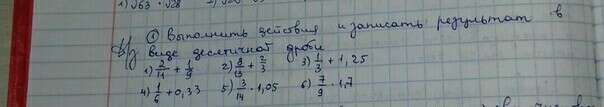 1) √63 · √28
① Выполнить действия и записать результат в
виде десятичной дроби
1) 2/11 + 1/9 2) 8/13 + 2/3 3) 1/3 + 1,25
4) 1/6 + 0,33 5) 3/14 · 1,05 6) 7/9 · 1,7